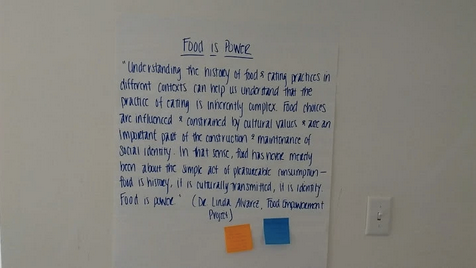 Food is Power
"Understanding the history of food & eating practices in
different contexts can help us understand that the
practice of eating is inherently complex. Food choices
are influenced & constrained by cultural values & are an
important part of the construction & maintenance of
social identity. In that sense, food has never merely
been about the simple act of pleasurable consumption—
food is history, it is culturally transmitted, it is identity.
Food is power." (Dr. Linda Alvarez, Food Empowerment
Project)